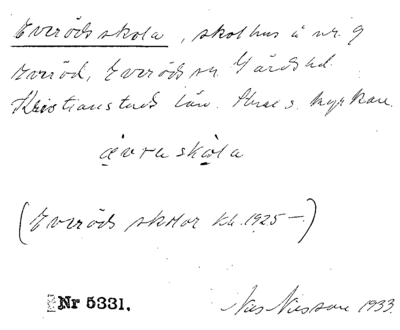 Everöds skola, skolhus å nr. 9
Everöd, Everöds sn. Gärds hd.
Kristianstads län. Strax s. kyrkan.
ævrusköla
(Everöds skolor kh. 1925 —)
Nr 5331.
Nils Nilsson 1933.